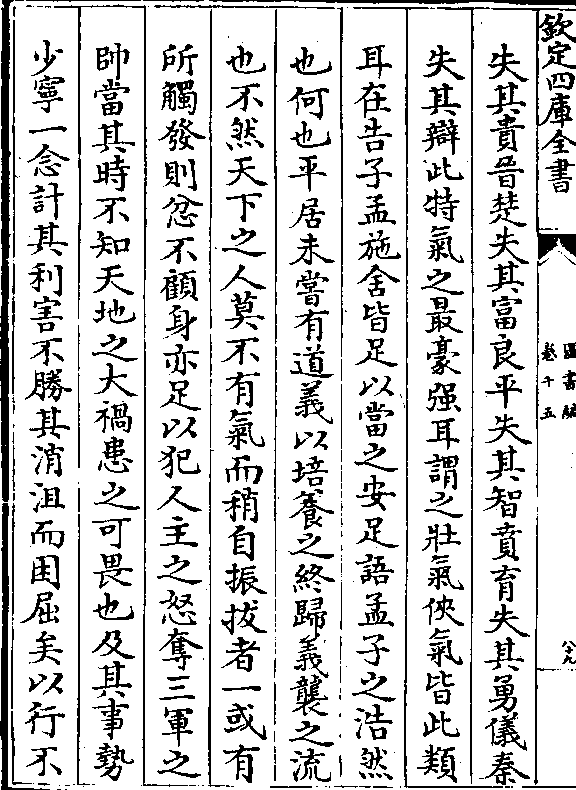 欽定四庫全書
圖書編
卷十五
八十九
失其貴晉楚失其富良平失其智賁育失其勇儀秦
失其辯此特氣之最豪强耳謂之壯氣俠氣皆此類
耳在告子孟施舍皆足以當之安足語孟子之浩然
也何也平居未嘗有道義以培養之終歸義襲之流
也不然天下之人莫不有氣而稍自振拔者一或有
所觸發則忿不顧身亦足以犯人主之怒奪三軍之
帥當其時不知天地之大禍患之可畏也及其事勢
少寧一念計其利害不勝其消沮而困屈矣以行不